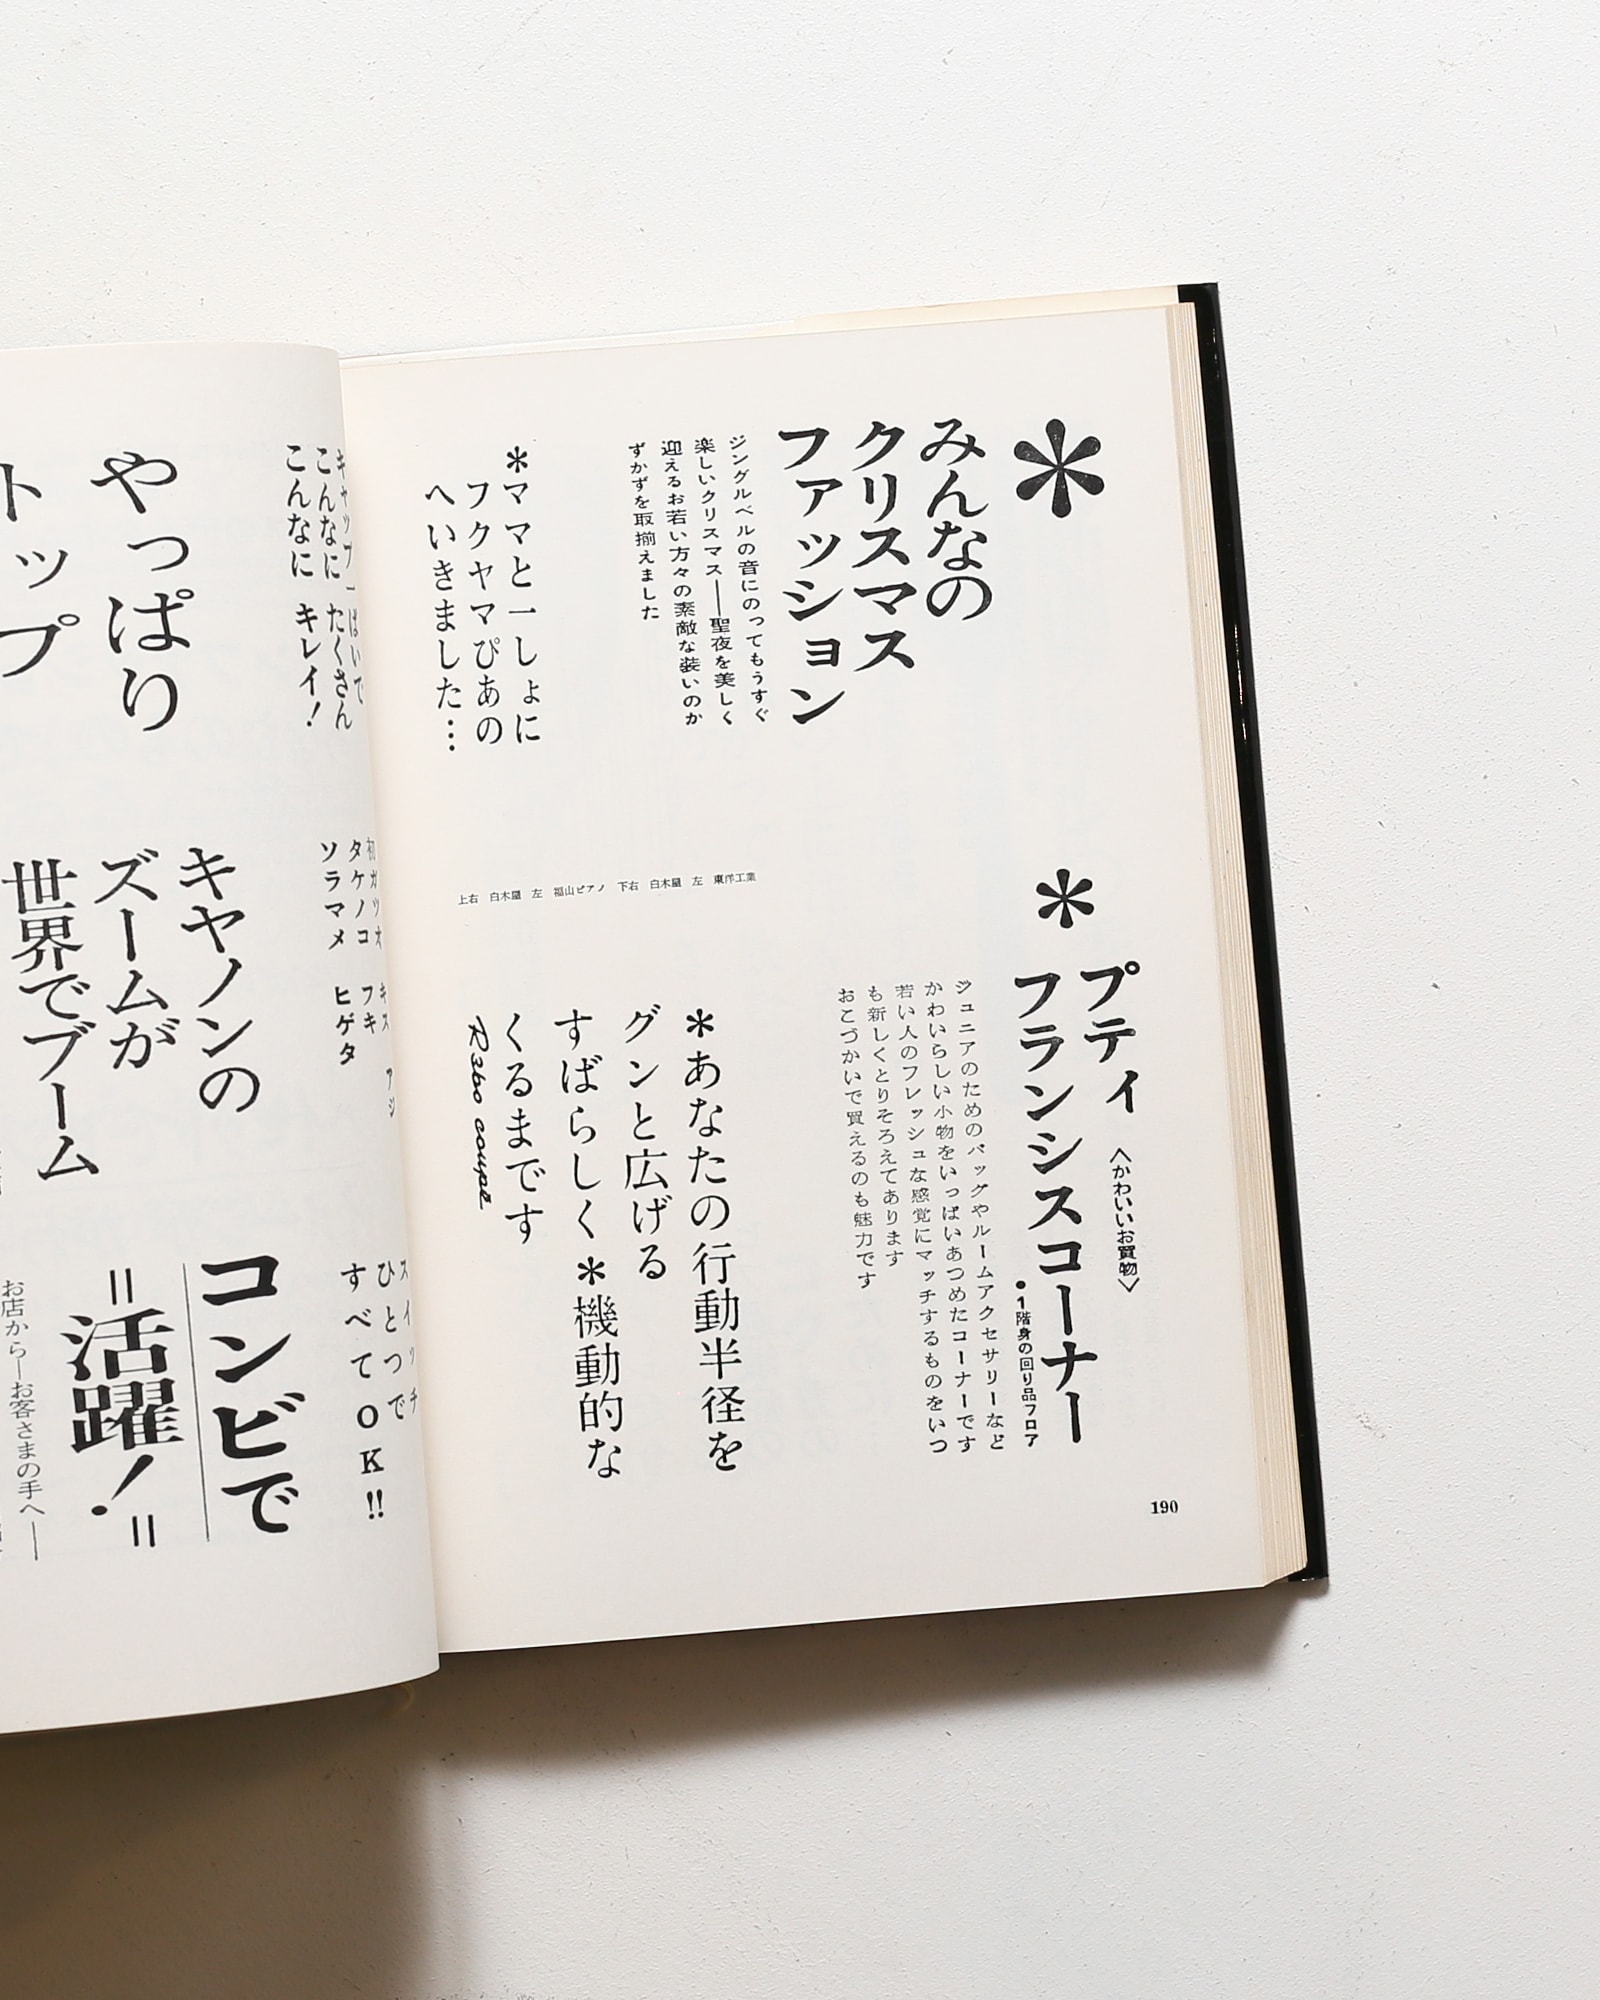 ＊
みんなの
クリスマス
ファッション
ジングルベルの音にのってもうすぐ
楽しいクリスマス――聖夜を美しく
迎えるお若い方々の素敵な装いのか
ずかずを取揃えました
＊ママと一しょに
フクヤマぴあの
へいきました…
上右　白木屋　左　福山ピアノ　下右　白木屋　左　東洋工業
＊
プティ〈かわいいお買物〉
フランシスコーナー
●1階身の回り品フロア
ジュニアのためのバッグやルームアクセサリーなど
かわいらしい小物をいっぱいあつめたコーナーです
若い人のフレッシュな感覚にマッチするものをいつ
も新しくとりそろえてあります
おこづかいで買えるのも魅力です
＊あなたの行動半径を
グンと広げる
すばらしく＊機動的な
くるまです
R360 coupe
190
キャップ一ぱいで
こんなに たくさん
こんなに キレイ！
やっぱり
トップ
初ガツオ キス アジ
タケノコ フキ
ソラマメ ヒゲタ
キヤノンの
ズームが
世界でブーム
スイッチ
ひとつで
すべてOK!!
コンビで
＝活躍！＝
お店から―お客さまの手へ―